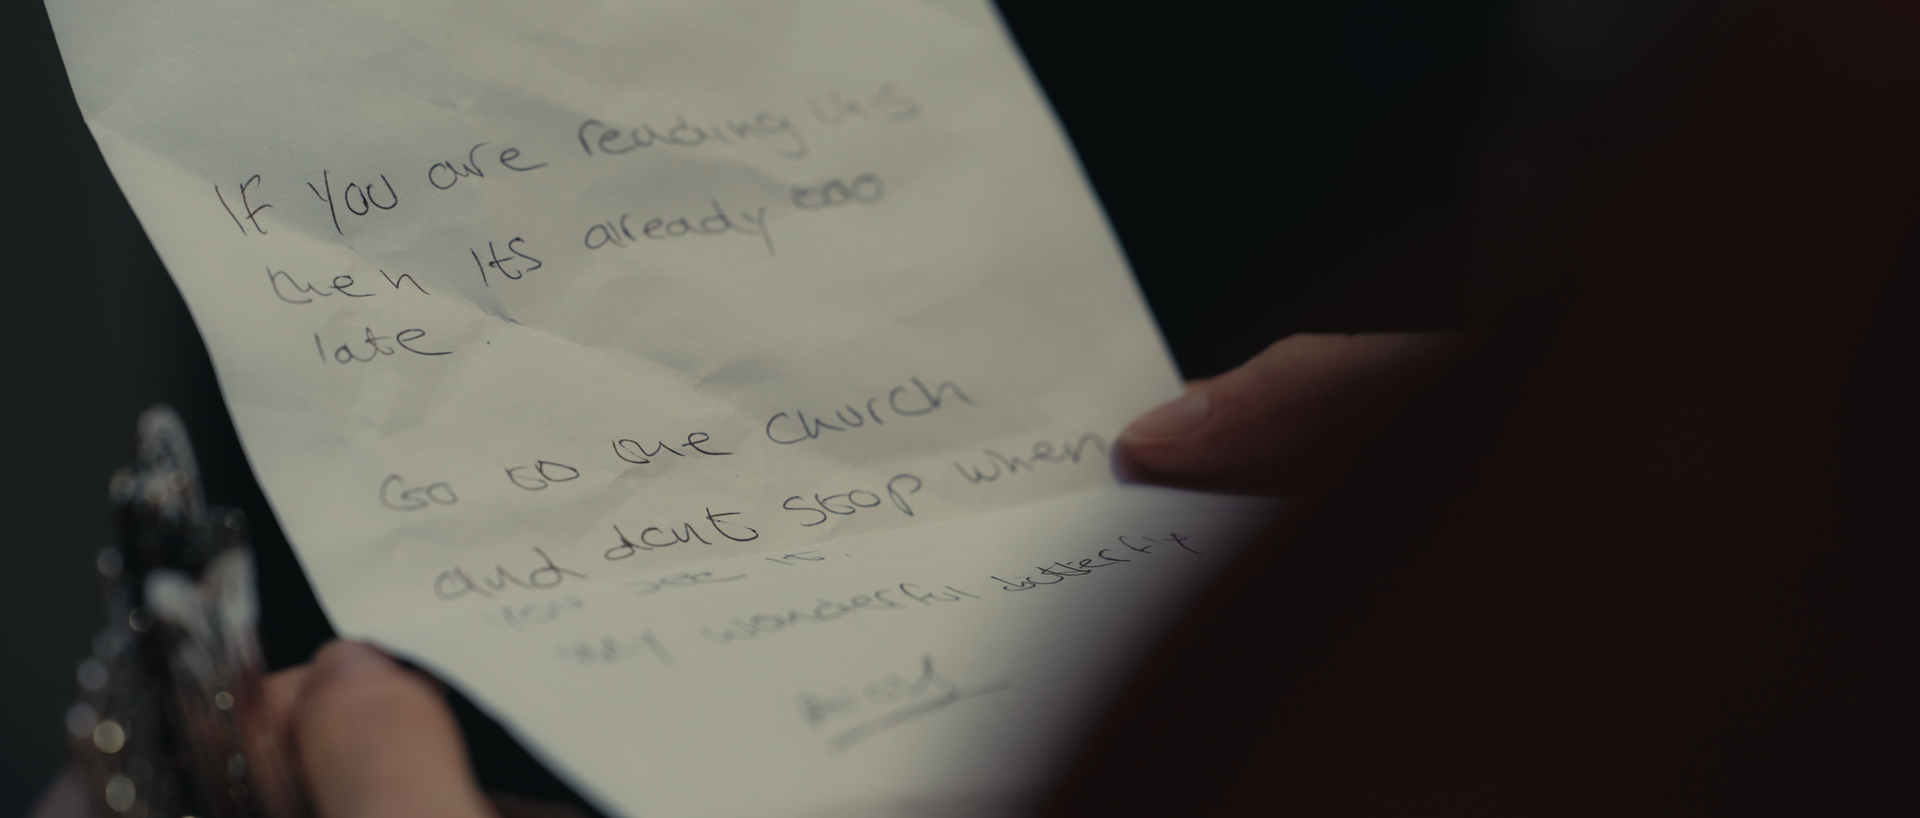 If you are reading this
then Its already too
late.
Go to the church
and dont stop when
you see it.
My wonderful butterfly